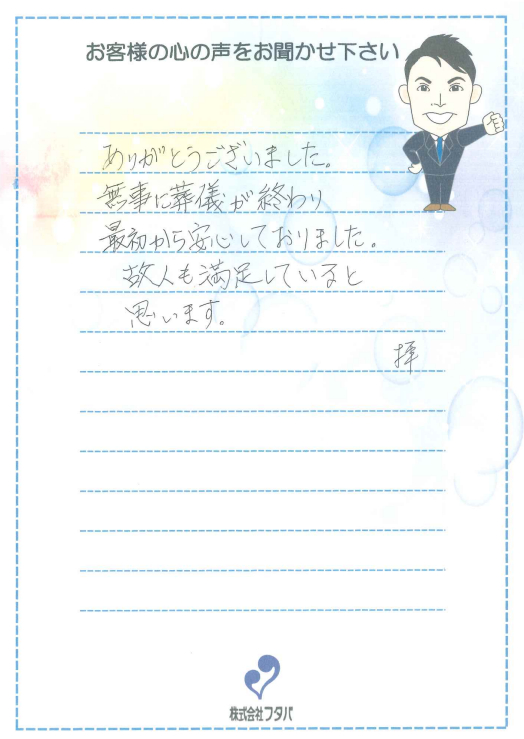 お客様の心の声をお聞かせ下さい
ありがとうございました。
無事に葬儀が終わり
最初から安心しておりました。
故人も満足していると
思います。
拝
株式会社フタバ